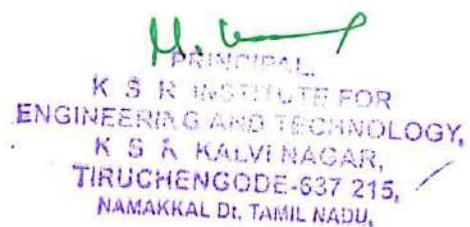 PRINCIPAL,
K S R INSTITUTE FOR
ENGINEERING AND TECHNOLOGY,
K S R KALVI NAGAR,
TIRUCHENGODE-637 215,
NAMAKKAL Dt, TAMIL NADU,